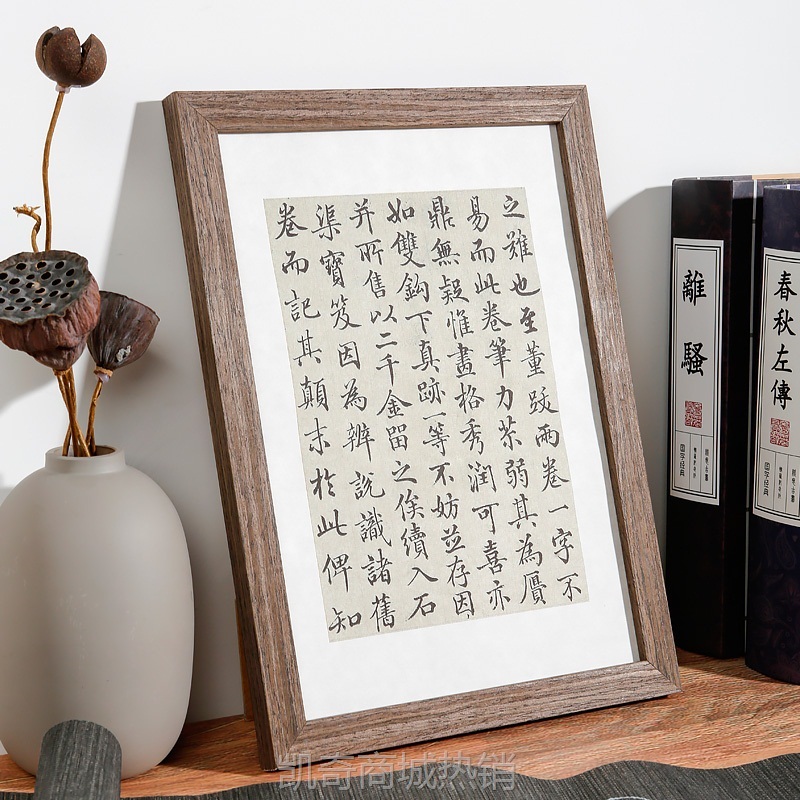 之難也至董跋兩卷一字不
易而此卷筆力苶弱其為贋
鼎無疑惟畫格秀潤可喜亦
如雙鈎下真跡一等不妨並存因
并所售以二千金留之俟續入石
渠寶笈因為辨說識諸舊
卷而記其顛末於此俾知
離騷
国学经典
春秋左傳
国学经典
凯奇商城热销